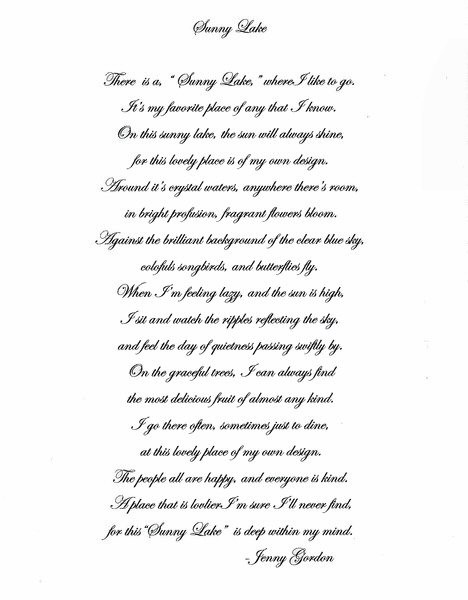 Sunny Lake
There is a, "Sunny Lake," where I like to go.
It's my favorite place of any that I know.
On this sunny lake, the sun will always shine,
for this lovely place is of my own design.
Around it's crystal waters, anywhere there's room,
in bright profusion, fragrant flowers bloom.
Against the brilliant background of the clear blue sky,
colofuls songbirds, and butterflies fly.
When I'm feeling lazy, and the sun is high,
I sit and watch the ripples reflecting the sky,
and feel the day of quietness passing swiftly by.
On the graceful trees, I can always find
the most delicious fruit of almost any kind.
I go there often, sometimes just to dine,
at this lovely place of my own design.
The people all are happy, and everyone is kind.
A place that is lovlier I'm sure I'll never find,
for this "Sunny Lake" is deep within my mind.
-Jenny Gordon